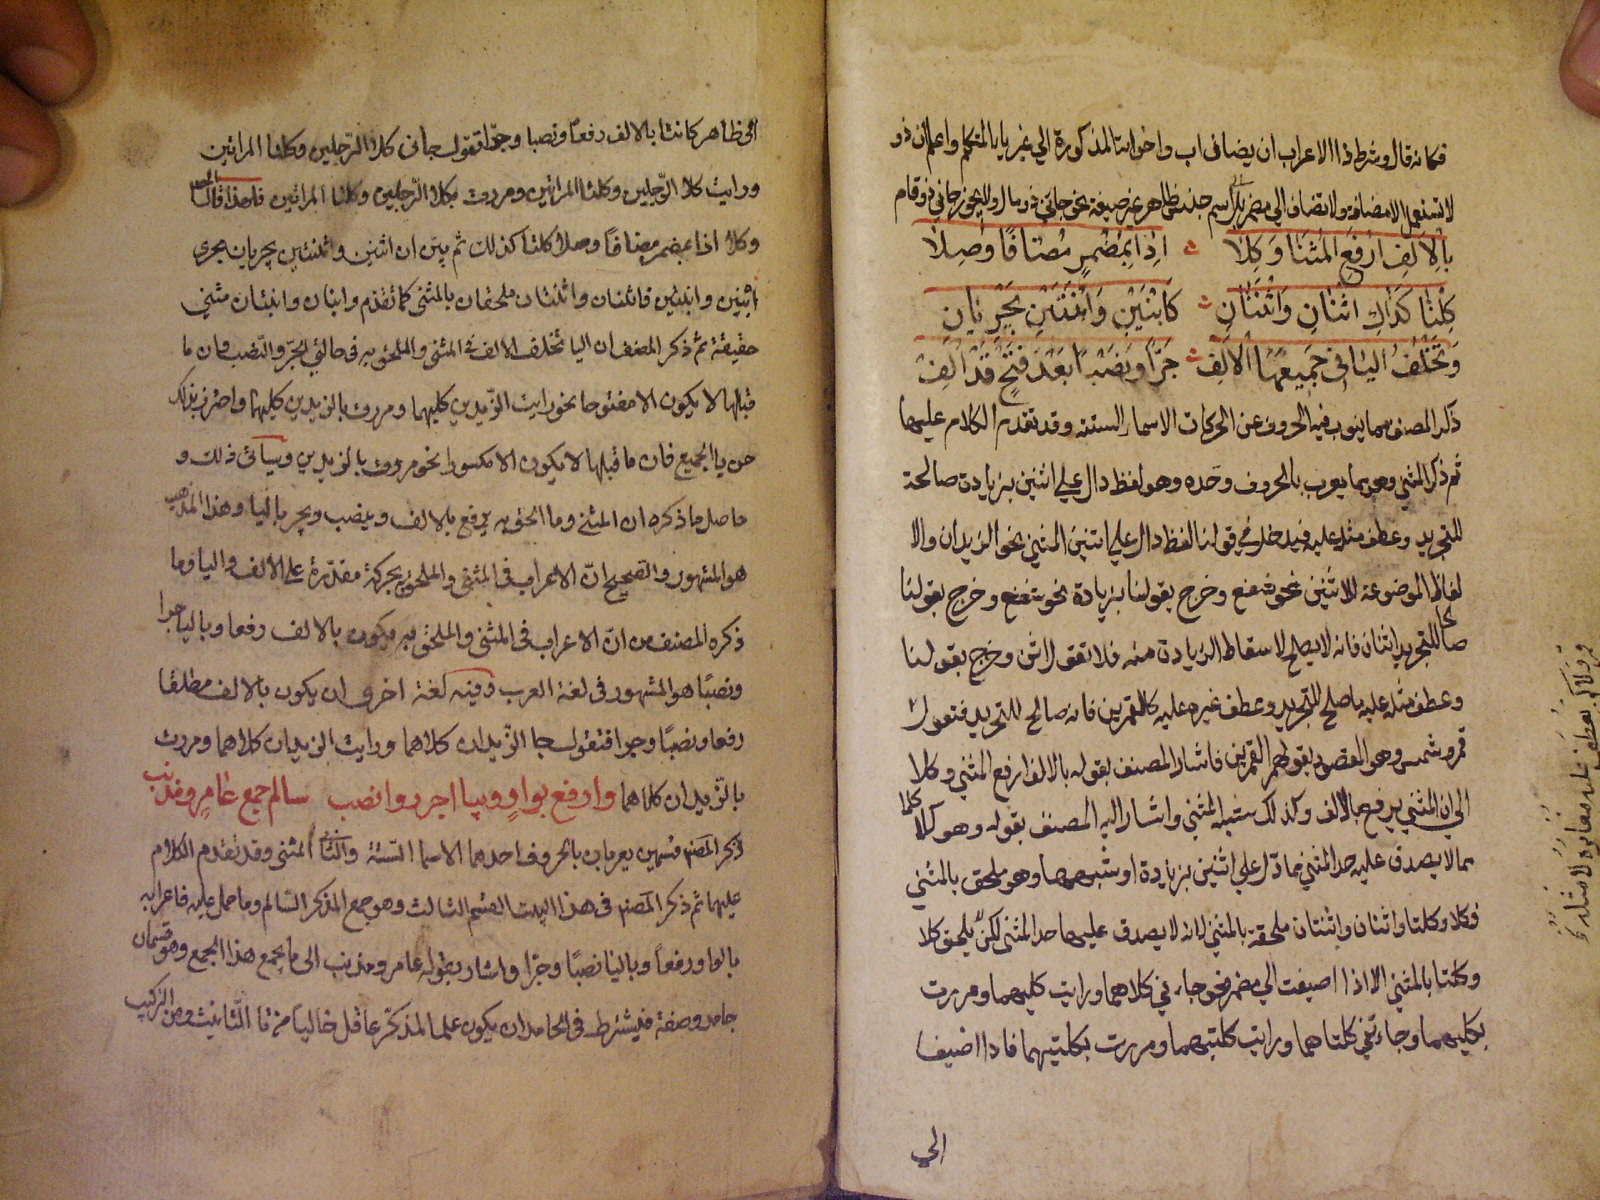 فكانه قال وشرط ذا الاعراب ان يضاف اب واخواته المذكورة الي غير يا المتكلم واعلم ان ذو
لا تستعمل الا مضافة ولا تضاف الي مضمر بل الي اسم جنس ظاهر غير صفة نحو جاني ذو مال ولا يجوز جاني ذو قام
بِالالِفِ ارْفَعِ المُثَنَّا وَكِلَا اِذَا بِمُضْمَرٍ مُضَافًا وُصِلَا
كِلْتَا كَذَاكَ اثْنَانِ وَاثْنَتَانِ كَابْنَيْنِ وَابْنَتَيْنِ يَجْرِيَانِ
وَتَخْلُفُ اليَا فِي جَمِيعِهَا الالِفْ جَرًّا وَنَصْبًا بَعْدَ فَتْحٍ قَدْ الِفْ
ذكر المصنف مما ينوب فيه الحروف عن الحركات الاسماء الستة وقد تقدم الكلام عليها
ثم ذكر المثني وهو مما يعرب بالحروف وحده وهو لفظ دال علي اثنين بزيادة صالحة
للتجريد وعطف مثله عليه فيدخل في قولنا لفظ دال علي اثنين المثني نحو الزيدان والا
لفاظ الموضوعة للاثنين نحو شفع وخرج بقولنا بزيادة نحو شفع وخرج بقولنا
صالح للتجريد اثنان فانه لا يصلح لاسقاط الزيادة منه فلا تقول اثن وخرج بقولنا
وعطف مثله عليه ما صلح للتجريد وعطف غيره عليه كالقمرين فانه صالح للتجريد فتقول
قمر وشمس وهو المقصود بقولهم القمرين فاشار المصنف بقوله بالالف ارفع المثني وكلا
الي ان المثني يرفع بالالف وكذلك شبه المثني واشار اليه المصنف بقوله وهو كلا كلما
مما لا يصدق عليه حد المثني مما دل علي اثنين بزيادة او شبهها وهو ملحق بالمثني
فكلا وكلتا واثنان واثنتان ملحقة بالمثني لانه لا يصدق عليها حد المثني لكن لا يلحق كلا
وكلتا بالمثني الا اذا اضيفت الي مضمر نحو جاءني كلاهما ورايت كليهما ومررت
بكليهما وجاءتني كلتاهما ورايت كلتيهما ومررت بكلتيهما فاذا اضيفا
الي
الى ظاهر كانتا بالالف رفعا ونصبا وجرا فتقول جاني كلا الرّجلين وكلتا المراتين
ورايت كلا الرّجلين وكلتا المراتين ومررت بكلا الرّجلين وكلتا المراتين فلهذا قال
وكلا اذا بمضمر مضافًا وصلا كلتا كذلك ثم بيّن ان اثنين واثنتين يجريان مجرى
ابنين وابنتين فاثنان واثنتان ملحقان بالمثنى كما تقدم وابنان وابنتان مثنى
حقيقة ثم ذكر المصنف ان اليا تخلف الالف في المثنى والملحق به في حالتي الجرّ والنّصب وان ما
قبلها لا يكون الا مفتوحا نحو رايت الزّيدين كليهما ومررت بالزيدين كليهما واحترز بذلك
عن يا الجمع فان ما قبلها لا يكون الا مكسورا نحو مررت بالزيدين وسيأتى ذلك و
حاصل ما ذكره ان المثنى وما الحق به يرفع بالالف وينصب ويجر باليا وهذا المذهب
هو المشهور والصحيح انّ الاعراب في المثنى والملحق بحركة مقدّرة على الالف واليا وما
ذكره المصنف من انّ الاعراب في المثنى والملحق به يكون بالالف رفعا وباليا جرا
ونصبًا هو المشهور في لغة العرب وفيه لغة اخرى ان يكون بالالف مطلقا
رفعا ونصبًا وجرا فتقول جا الزّيدان كلاهما ورايت الزيدان كلاهما ومررت
بالزّيدان كلاهما وارفع بواوٍ وبيا اجرر وانصب سالم جمع عامرٍ ومذنب
ذكر المصنف قسمين يعربان بالحروف احدهما الاسما الستة والثاني المثنى وقد تقدم الكلام
عليها ثم ذكر المصنف في هذا البيت القسم الثالث وهو جمع المذكر السّالم وما حمل عليه فاعرابه
بالواو رفعاً وباليا نصبًا وجرّا واشار بقوله عامر ومذنب الى ما يجمع هذا الجمع وهو قسمان
جامد وصفة فيشترط في الجامد ان يكون علما لمذكّر عاقل خاليا من تا التّانيث ومن التركيب